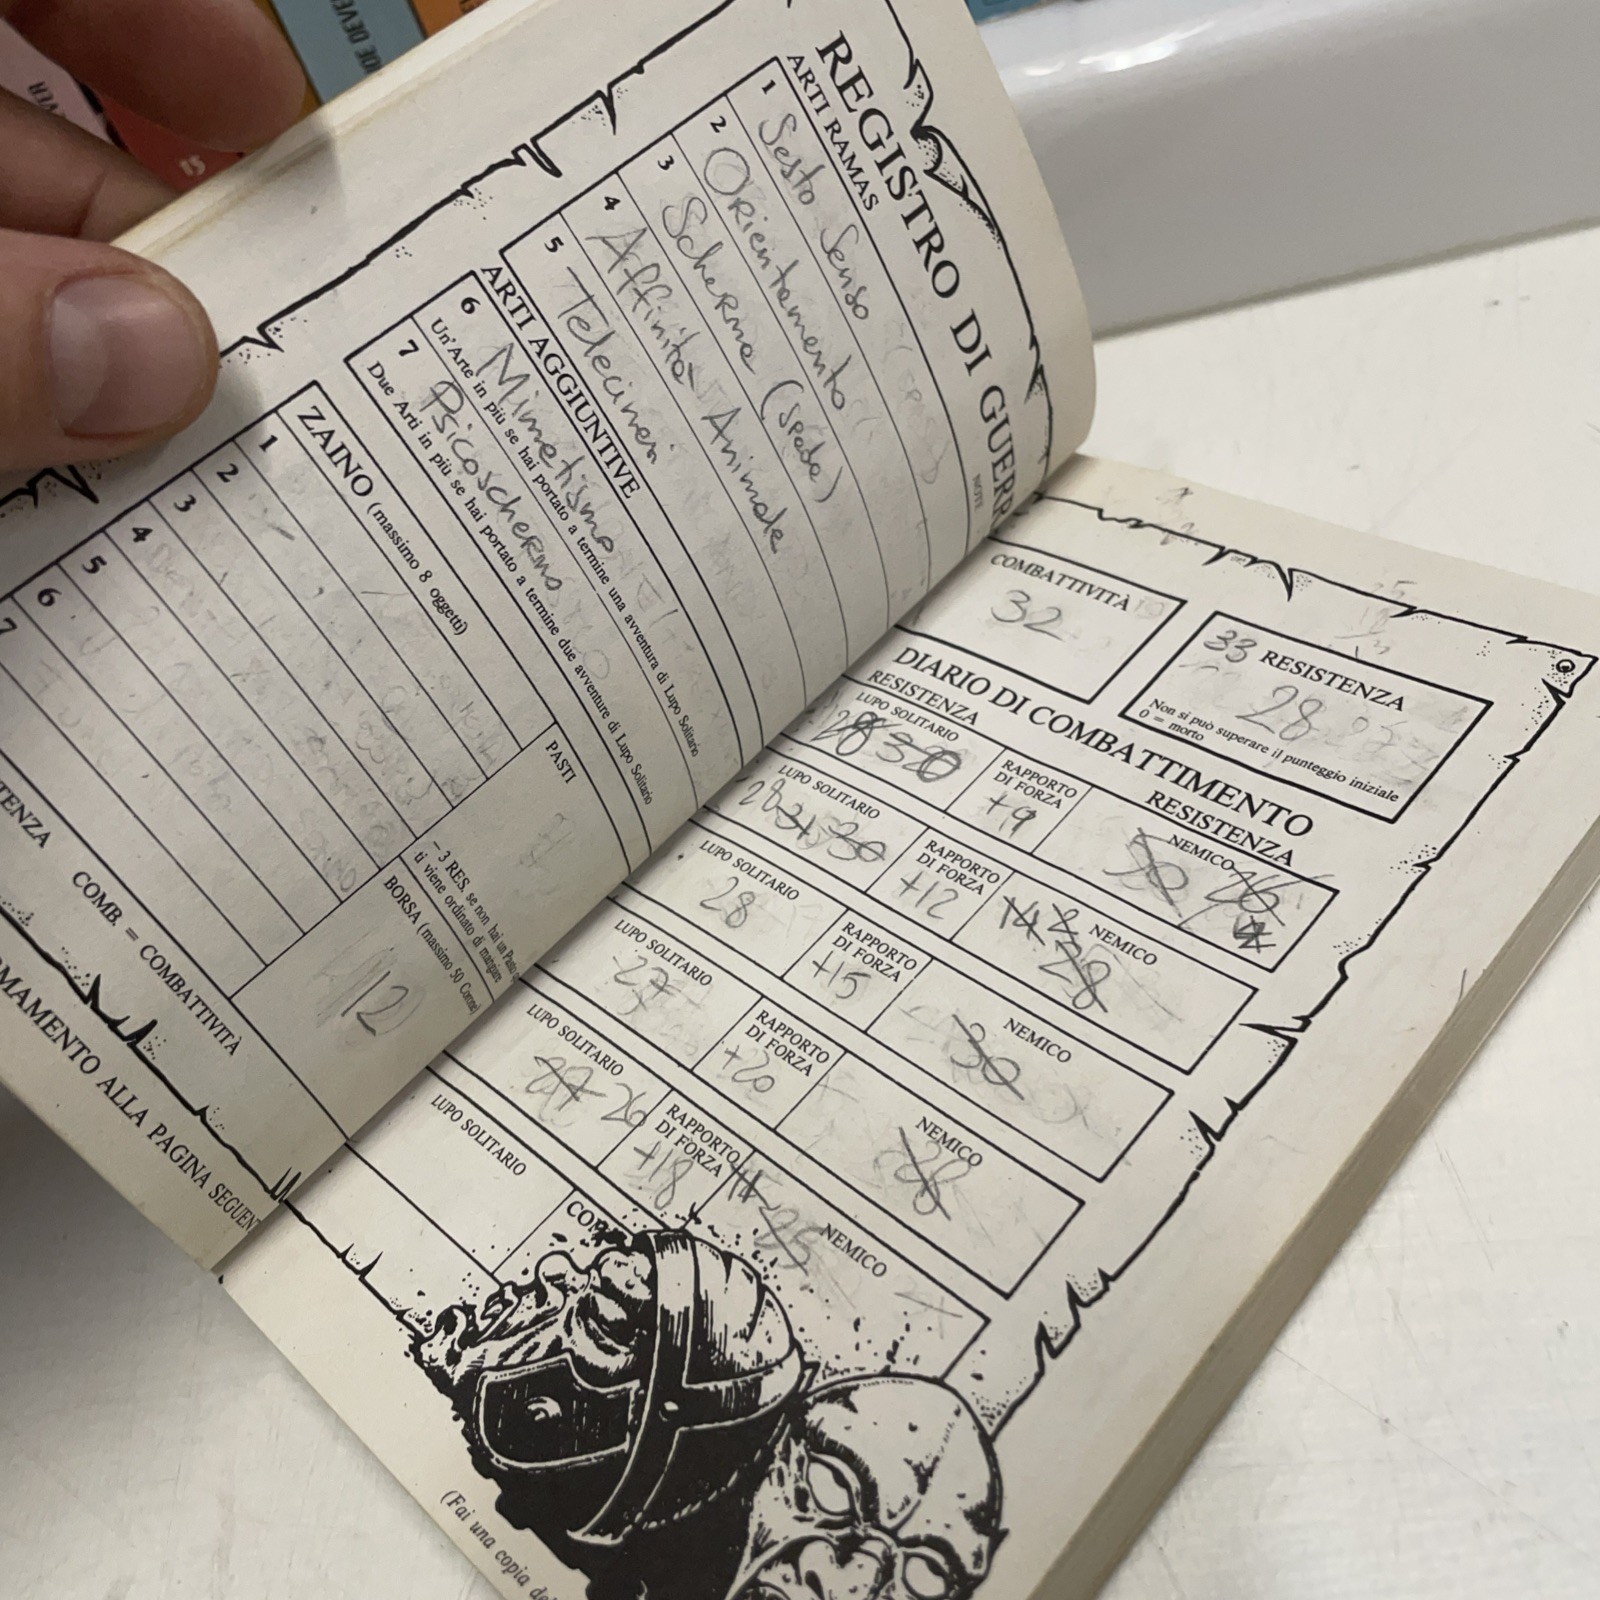 REGISTRO DI GUERR
ARTI RAMAS
NOTE
1 Sesto Senso
2 Orientamento
3 Scherma (spada)
4 Affinità Animale
5 Telecinesi
ARTI AGGIUNTIVE
6 Mimetismo
Un'Arte in più se hai portato a termine una avventura di Lupo Solitario
7 Psicoschermo
Due Arti in più se hai portato a termine due avventure di Lupo Solitario
ZAINO (massimo 8 oggetti)
1
2
3
4
5
6
7
PASTI
– 3 RES. se non hai un Pasto
ti viene ordinato di mangiare
BORSA (massimo 50 Corone)
12
TENZA
COMB. = COMBATTIVITÀ
RMAMENTO ALLA PAGINA SEGUENT
COMBATTIVITÀ
32
33 RESISTENZA
28
Non si può superare il punteggio iniziale
0 = morto
DIARIO DI COMBATTIMENTO
RESISTENZA
RESISTENZA
LUPO SOLITARIO
RAPPORTO
DI FORZA
+9
NEMICO
LUPO SOLITARIO
28 31 30
RAPPORTO
DI FORZA
+12
NEMICO
28
LUPO SOLITARIO
28
RAPPORTO
DI FORZA
+15
NEMICO
30
LUPO SOLITARIO
27
RAPPORTO
DI FORZA
+20
NEMICO
LUPO SOLITARIO
26
RAPPORTO
DI FORZA
+18
NEMICO
25
LUPO SOLITARIO
(Fai una copia de